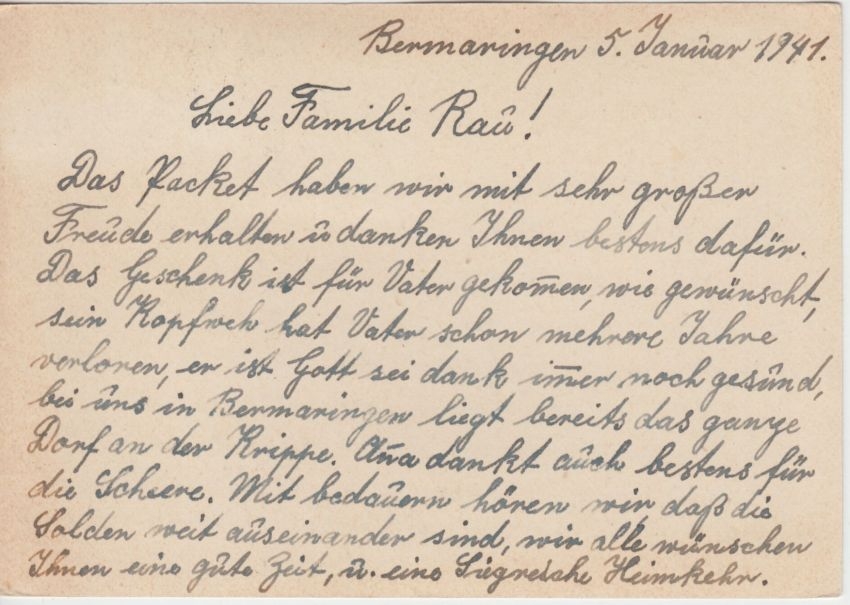 Bermaringen 5. Januar 1941.
Liebe Familie Rau!
Das Packet haben wir mit sehr großer
Freude erhalten u danken Ihnen bestens dafür.
Das Geschenk ist für Vater gekom̄en, wie gewünscht,
sein Kopfweh hat Vater schon mehrere Jahre
verloren, er ist Gott sei dank im̄er noch gesund,
bei uns in Bermaringen liegt bereits das ganze
Dorf an der Krippe. An̄a dankt auch bestens für
die Scheere. Mit bedauern hören wir, daß die
Solden weit auseinander sind, wir alle wünschen
Ihnen eine gute Zeit, u. eine Siegreiche Heimkehr.